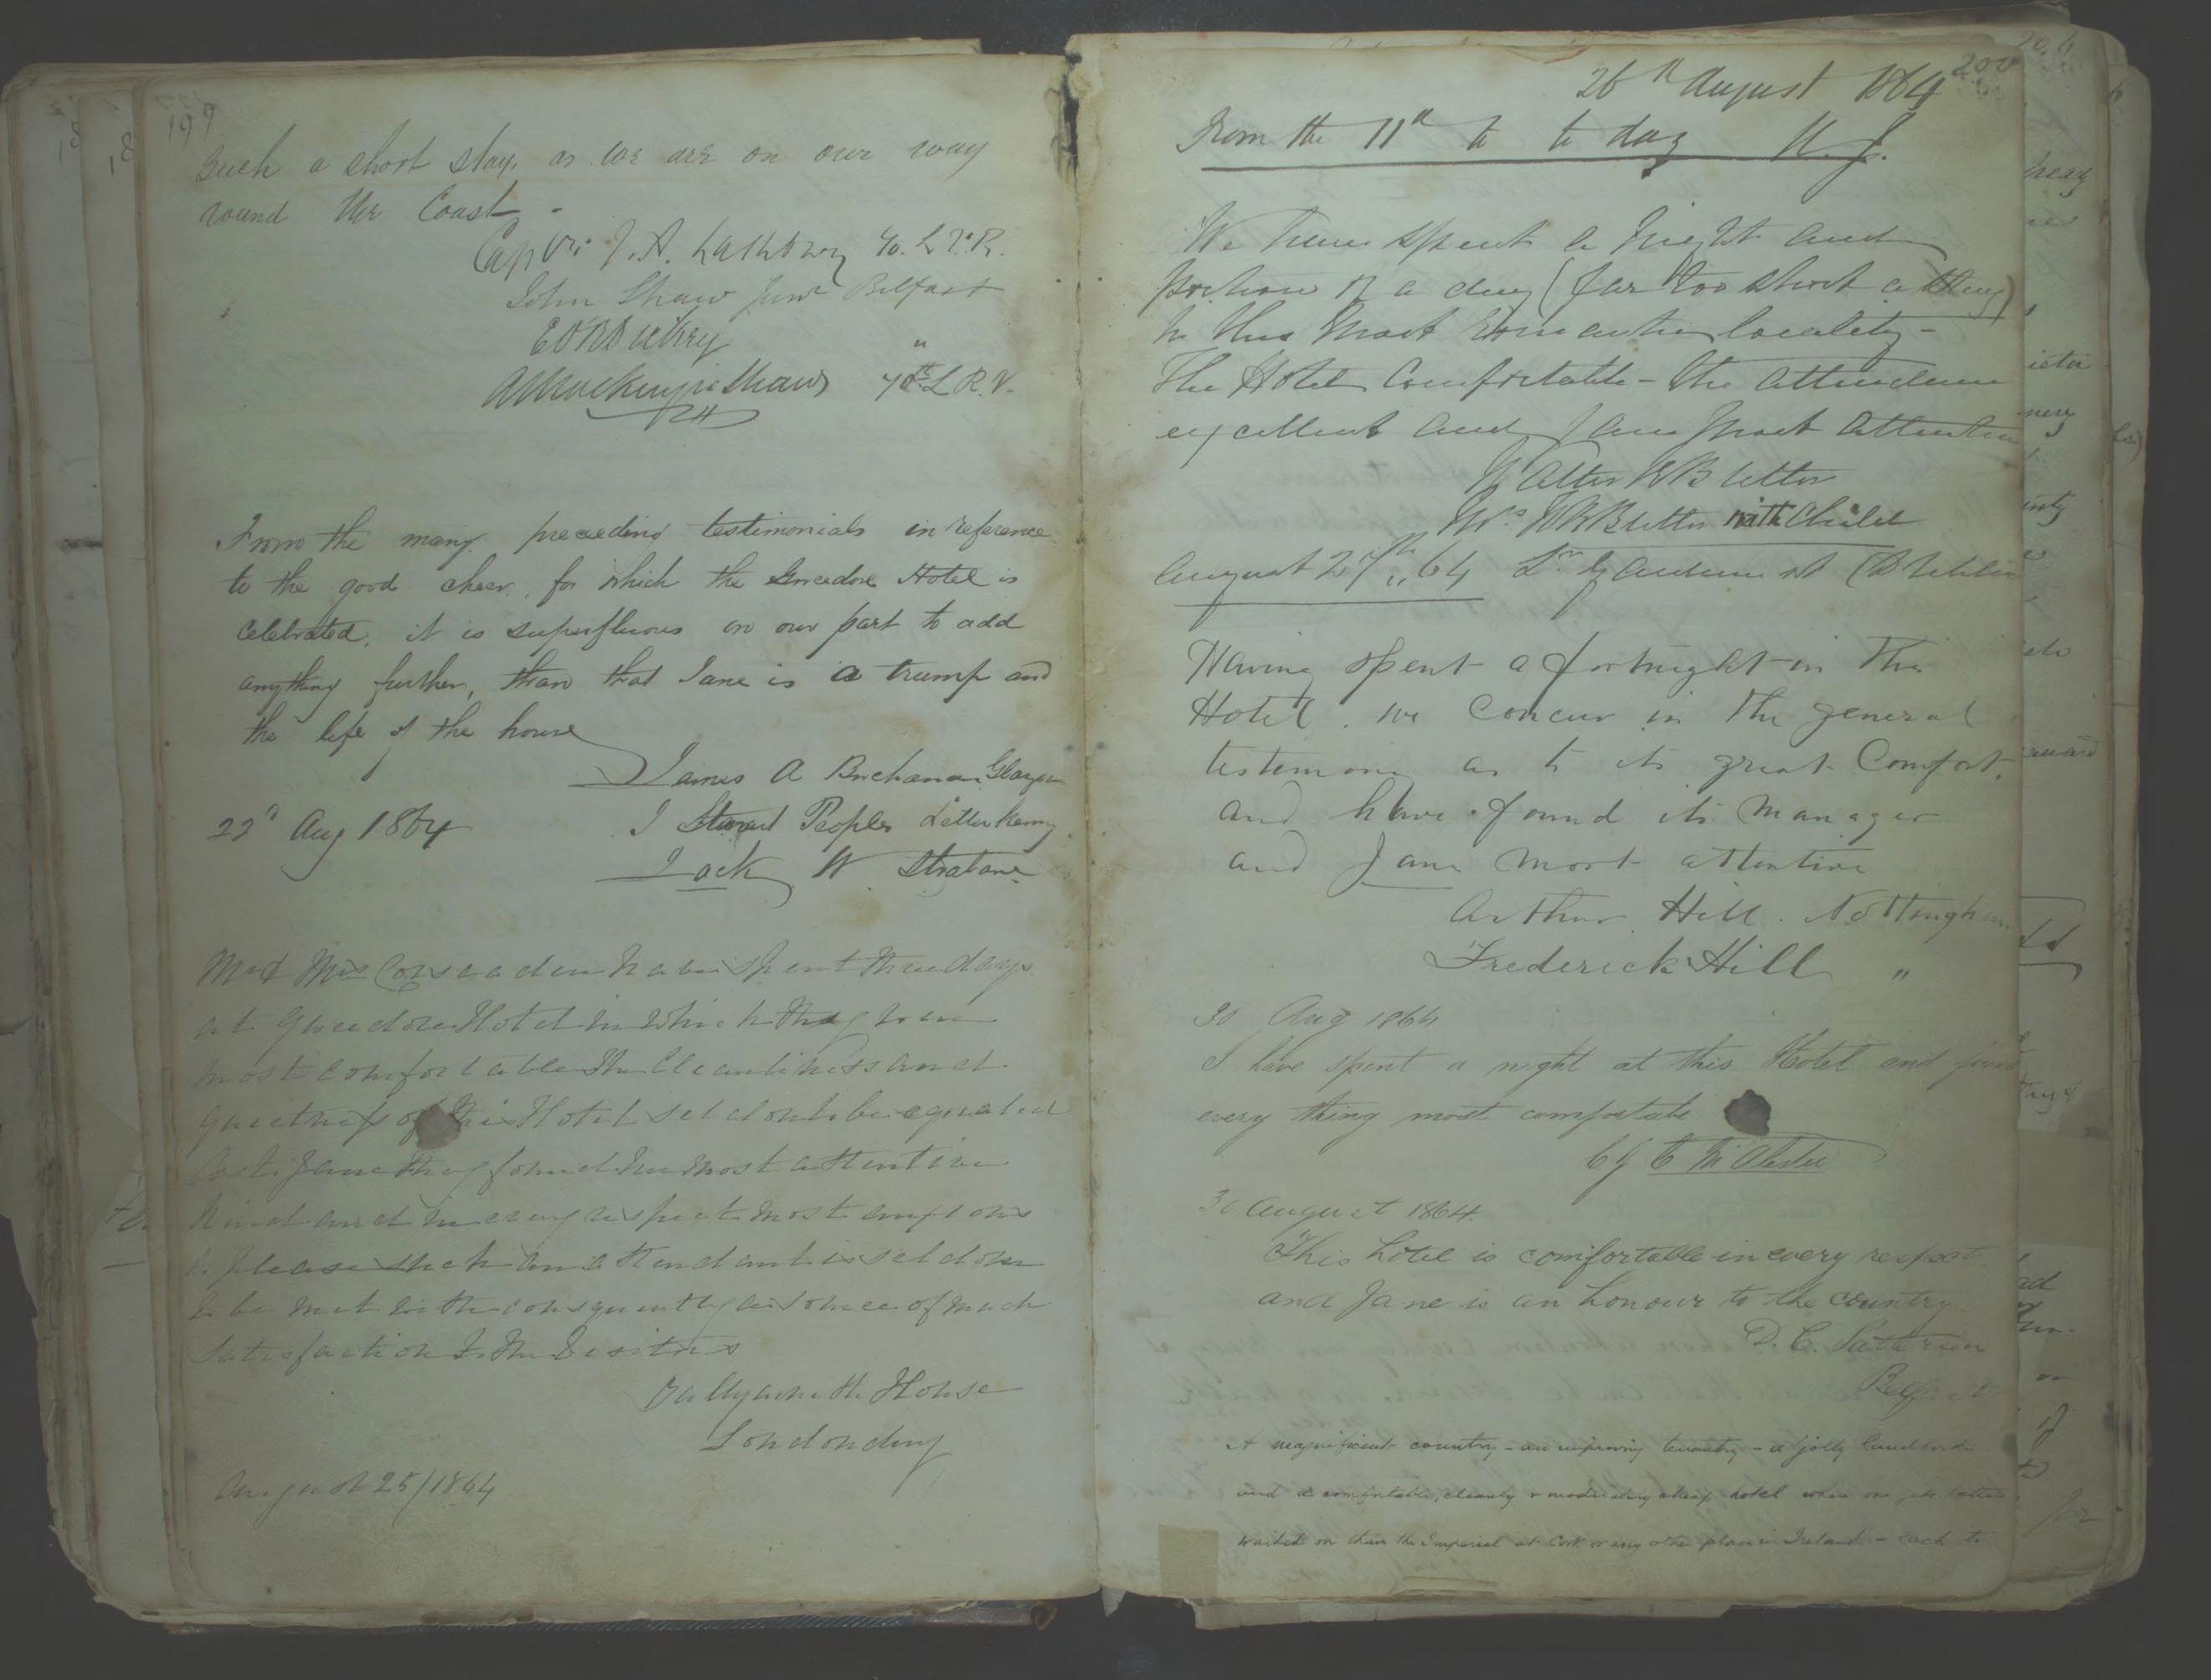 199
such a short stay, as we are on our way
round the Coast -
Capt J. A.
John Shaw Junr Belfast
"
A Mackenzie Shaw 70th L R. V.
From the many preceding testimonials in reference
to the good cheer, for which the Gweedore Hotel is
celebrated, it is superfluous on our part to add
anything further, than that Jane is a trump and
the life of the house
James A Buchanan Glasgow
22d Aug 1864 J Stewart Peoples Letterkenny
Jack W. Strabane
Mr & Mrs have spent three days
at Gweedore Hotel in which they were
most comfortable The Cleanliness and
quietness of this Hotel seldom to be equaled
As to Jane they found her most attentive
kind and in every respect most anxious
to please such an attendant is seldom
to be met with consequently a source of much
satisfaction to the Visitors
House
Londonderry
August 25/1864
200
26th August 1864
From the 11th to to day
We have spent a night and
portion of a day (far too short a thing)
in this most romantic locality -
The Hotel Comfortable - the attendance
excellent and Jane most attentive
Walter
Mrs with Child
August 27th "64
Having spent a fortnight in this
Hotel. we concur in the general
testimony as to its great Comfort,
and have found its manager
and Jane most attentive
Arthur Hill. Nottingham
Frederick Hill "
30 Aug 1864
I have spent a night at this Hotel and find
every thing most comfortable
30 August 1864.
This hotel is comfortable in every respect
and Jane is an honour to the country.
D. C.
Belfast
A magnificent country - an improving tenantry - a jolly landlord
and a comfortable, cleanly & moderately cheap hotel where one gets better
waited on than the Imperial at Cork or any other place in Ireland - each to